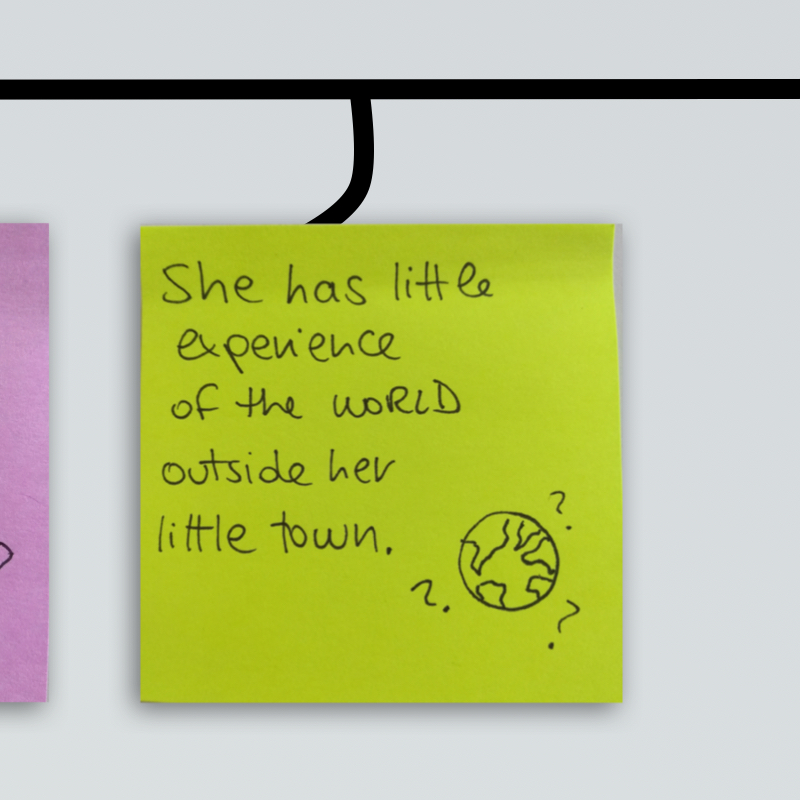 She has little
experience
of the WORLD
outside her
little town.
?
?
?